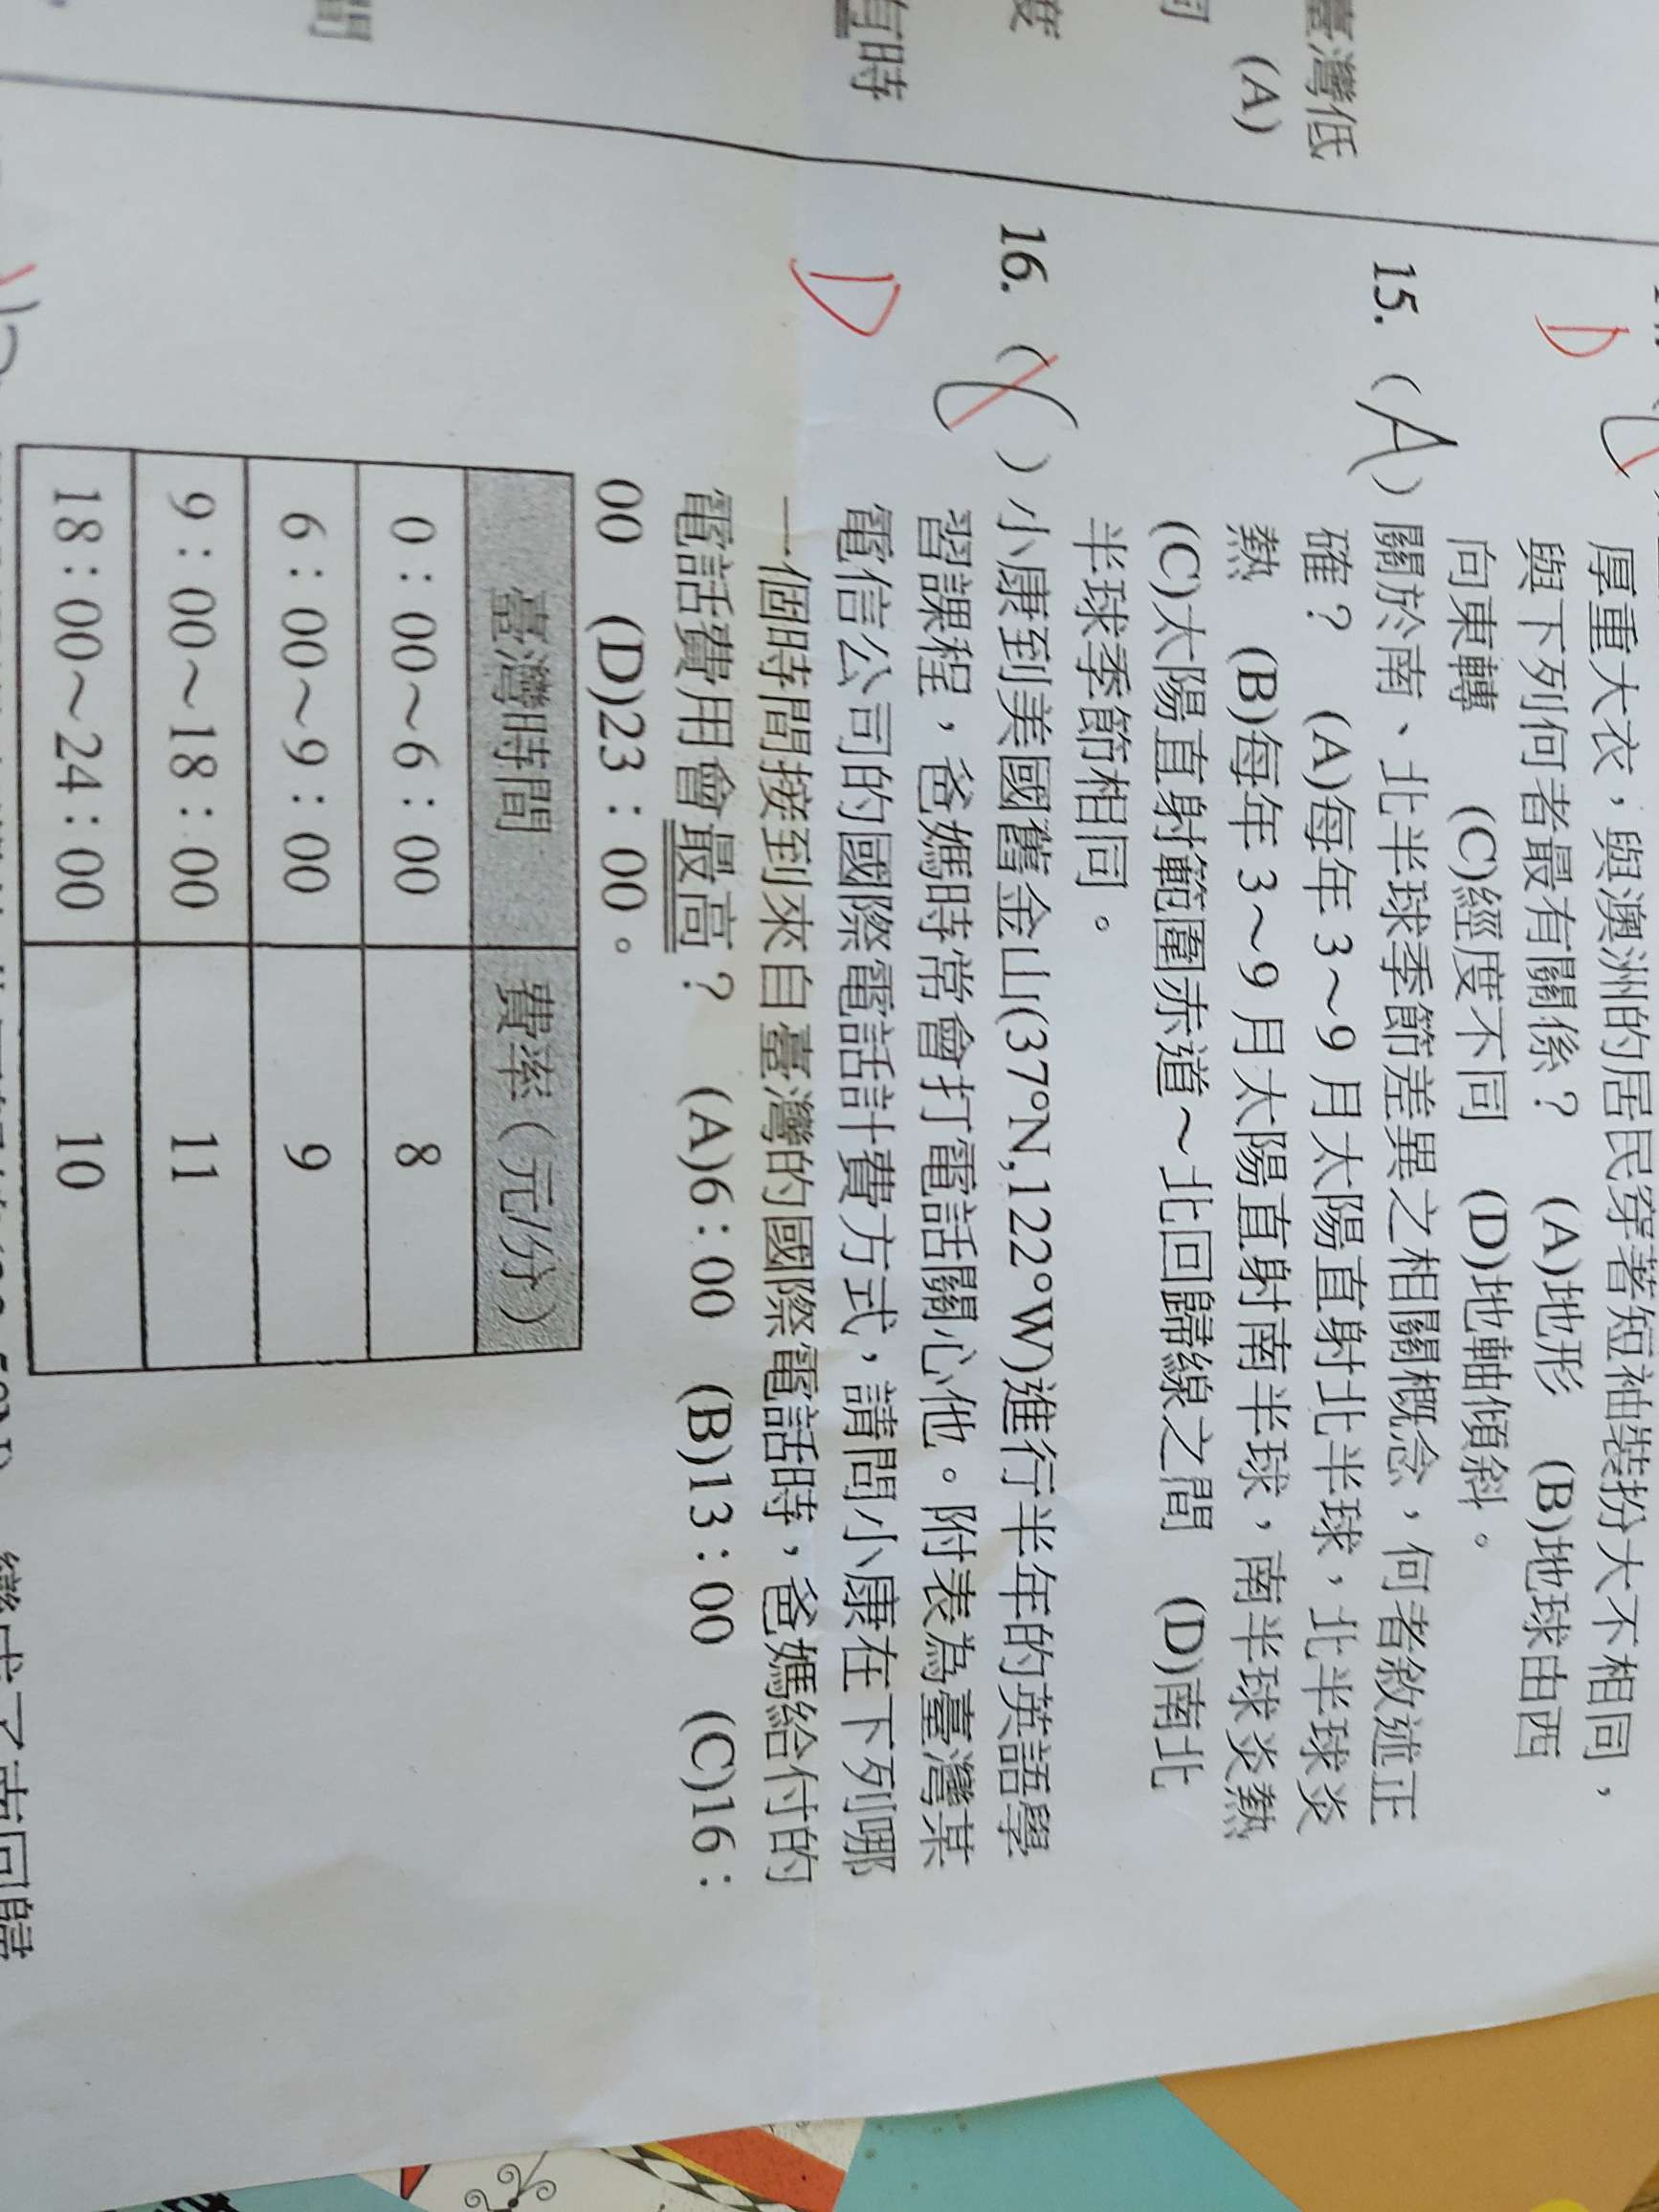 臺灣低
(A)
度
有時
間
D
厚重大衣，與澳洲的居民穿著短袖裝扮大不相同，
與下列何者最有關係？ (A)地形 (B)地球由西
向東轉 (C)經度不同 (D)地軸傾斜。
15. (A)關於南、北半球季節差異之相關概念，何者敘述正
確？ (A)每年 3～9 月太陽直射北半球，北半球炎
熱 (B)每年 3～9 月太陽直射南半球，南半球炎熱
(C)太陽直射範圍赤道～北回歸線之間 (D)南北
半球季節相同。
16. ( )小康到美國舊金山(37°N,122°W)進行半年的英語學
D
習課程，爸媽時常會打電話關心他。附表為臺灣某
電信公司的國際電話計費方式，請問小康在下列哪
一個時間接到來自臺灣的國際電話時，爸媽給付的
電話費用會最高？ (A)6：00 (B)13：00 (C)16：
00 (D)23：00。
臺灣時間 費率（元/分）
0：00～6：00 8
6：00～9：00 9
9：00～18：00 11
18：00～24：00 10